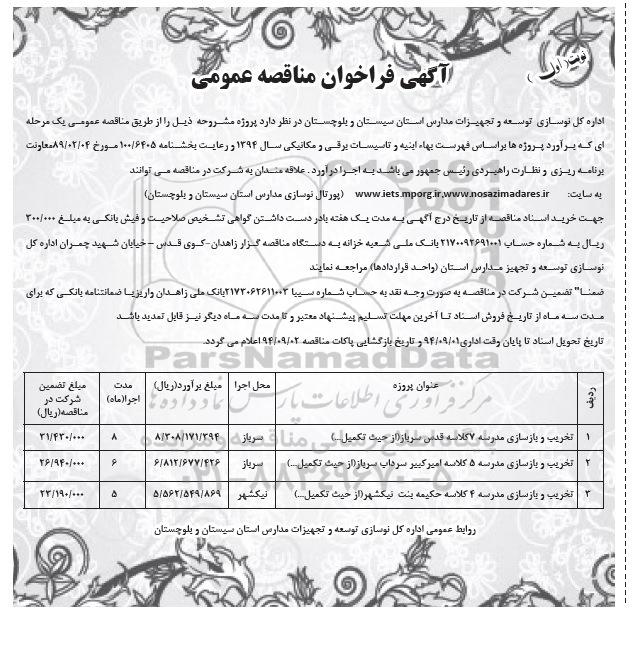 نوبت(اول)
آگهی فراخوان مناقصه عمومی
اداره کل نوسازی توسعه و تجهیزات مدارس استان سیستان و بلوچستان در نظر دارد پروژه مشروحه ذیل را از طریق مناقصه عمومی یک مرحله
ای که برآورد پروژه ها براساس فهرست بهاء ابنیه و تاسیسات برقی و مکانیکی سال ۱۳۹۴ و رعایت بخشنامه ۱۰۰/۶۴۰۵ مورخ ۸۹/۰۲/۰۴معاونت
برنامه ریزی و نظارت راهبردی رئیس جمهور می باشد به اجرا درآورد. علاقه مندان به شرکت در مناقصه می توانند
به سایت: www.iets.mporg.ir,www.nosazimadares.ir (پورتال نوسازی مدارس استان سیستان و بلوچستان)
جهت خرید اسناد مناقصه از تاریخ درج آگهی به مدت یک هفته بادر دست داشتن گواهی تشخیص صلاحیت و فیش بانکی به مبلغ ۳۰۰/۰۰۰
ریال به شماره حساب ۲۱۷۰۰۹۲۶۹۱۰۰۱ بانک ملی شعبه خزانه به دستگاه مناقصه گزار زاهدان-کوی قدس – خیابان شهید چمران اداره کل
نوسازی توسعه و تجهیز مدارس استان (واحد قراردادها) مراجعه نمایند
ضمنا" تضمین شرکت در مناقصه به صورت وجه نقد به حساب شماره سیبا ۲۱۷۳۰۶۲۶۱۱۰۰۲بانک ملی زاهدان واریزیا ضمانتنامه بانکی که برای
مدت سه ماه از تاریخ فروش اسناد تا آخرین مهلت تسلیم پیشنهاد معتبر و تا مدت سه ماه دیگر نیز قابل تمدید باشد
تاریخ تحویل اسناد تا پایان وقت اداری۹۴/۰۹/۰۱ و تاریخ بازگشایی پاکات مناقصه ۹۴/۰۹/۰۲اعلام می گردد.
ParsNamadData
مرکز فرآوری اطلاعات پارس نماد داده ها
۰۲۱-۸۸۳۴۹۶۷۰-۵
ردیف عنوان پروژه محل اجرا مبلغ برآورد(ریال) مدت اجرا(ماه) مبلغ تضمین شرکت در مناقصه(ریال)
۱ تخریب و بازسازی مدرسه ۷کلاسه قدس سرباز(از حیث تکمیل...) سرباز ۸/۳۰۸/۱۷۱/۳۹۴ ۸ ۳۱/۴۳۰/۰۰۰
۲ تخریب و بازسازی مدرسه ۵ کلاسه امیرکبیر سرداب سرباز(از حیث تکمیل...) سرباز ۶/۸۱۲/۶۷۷/۴۲۶ ۶ ۲۶/۹۴۰/۰۰۰
۳ تخریب و بازسازی مدرسه ۴ کلاسه حکیمه بنت نیکشهر(از حیث تکمیل...) نیکشهر ۵/۵۶۲/۵۴۹/۸۶۹ ۵ ۲۳/۱۹۰/۰۰۰
روابط عمومی اداره کل نوسازی توسعه و تجهیزات مدارس استان سیستان و بلوچستان